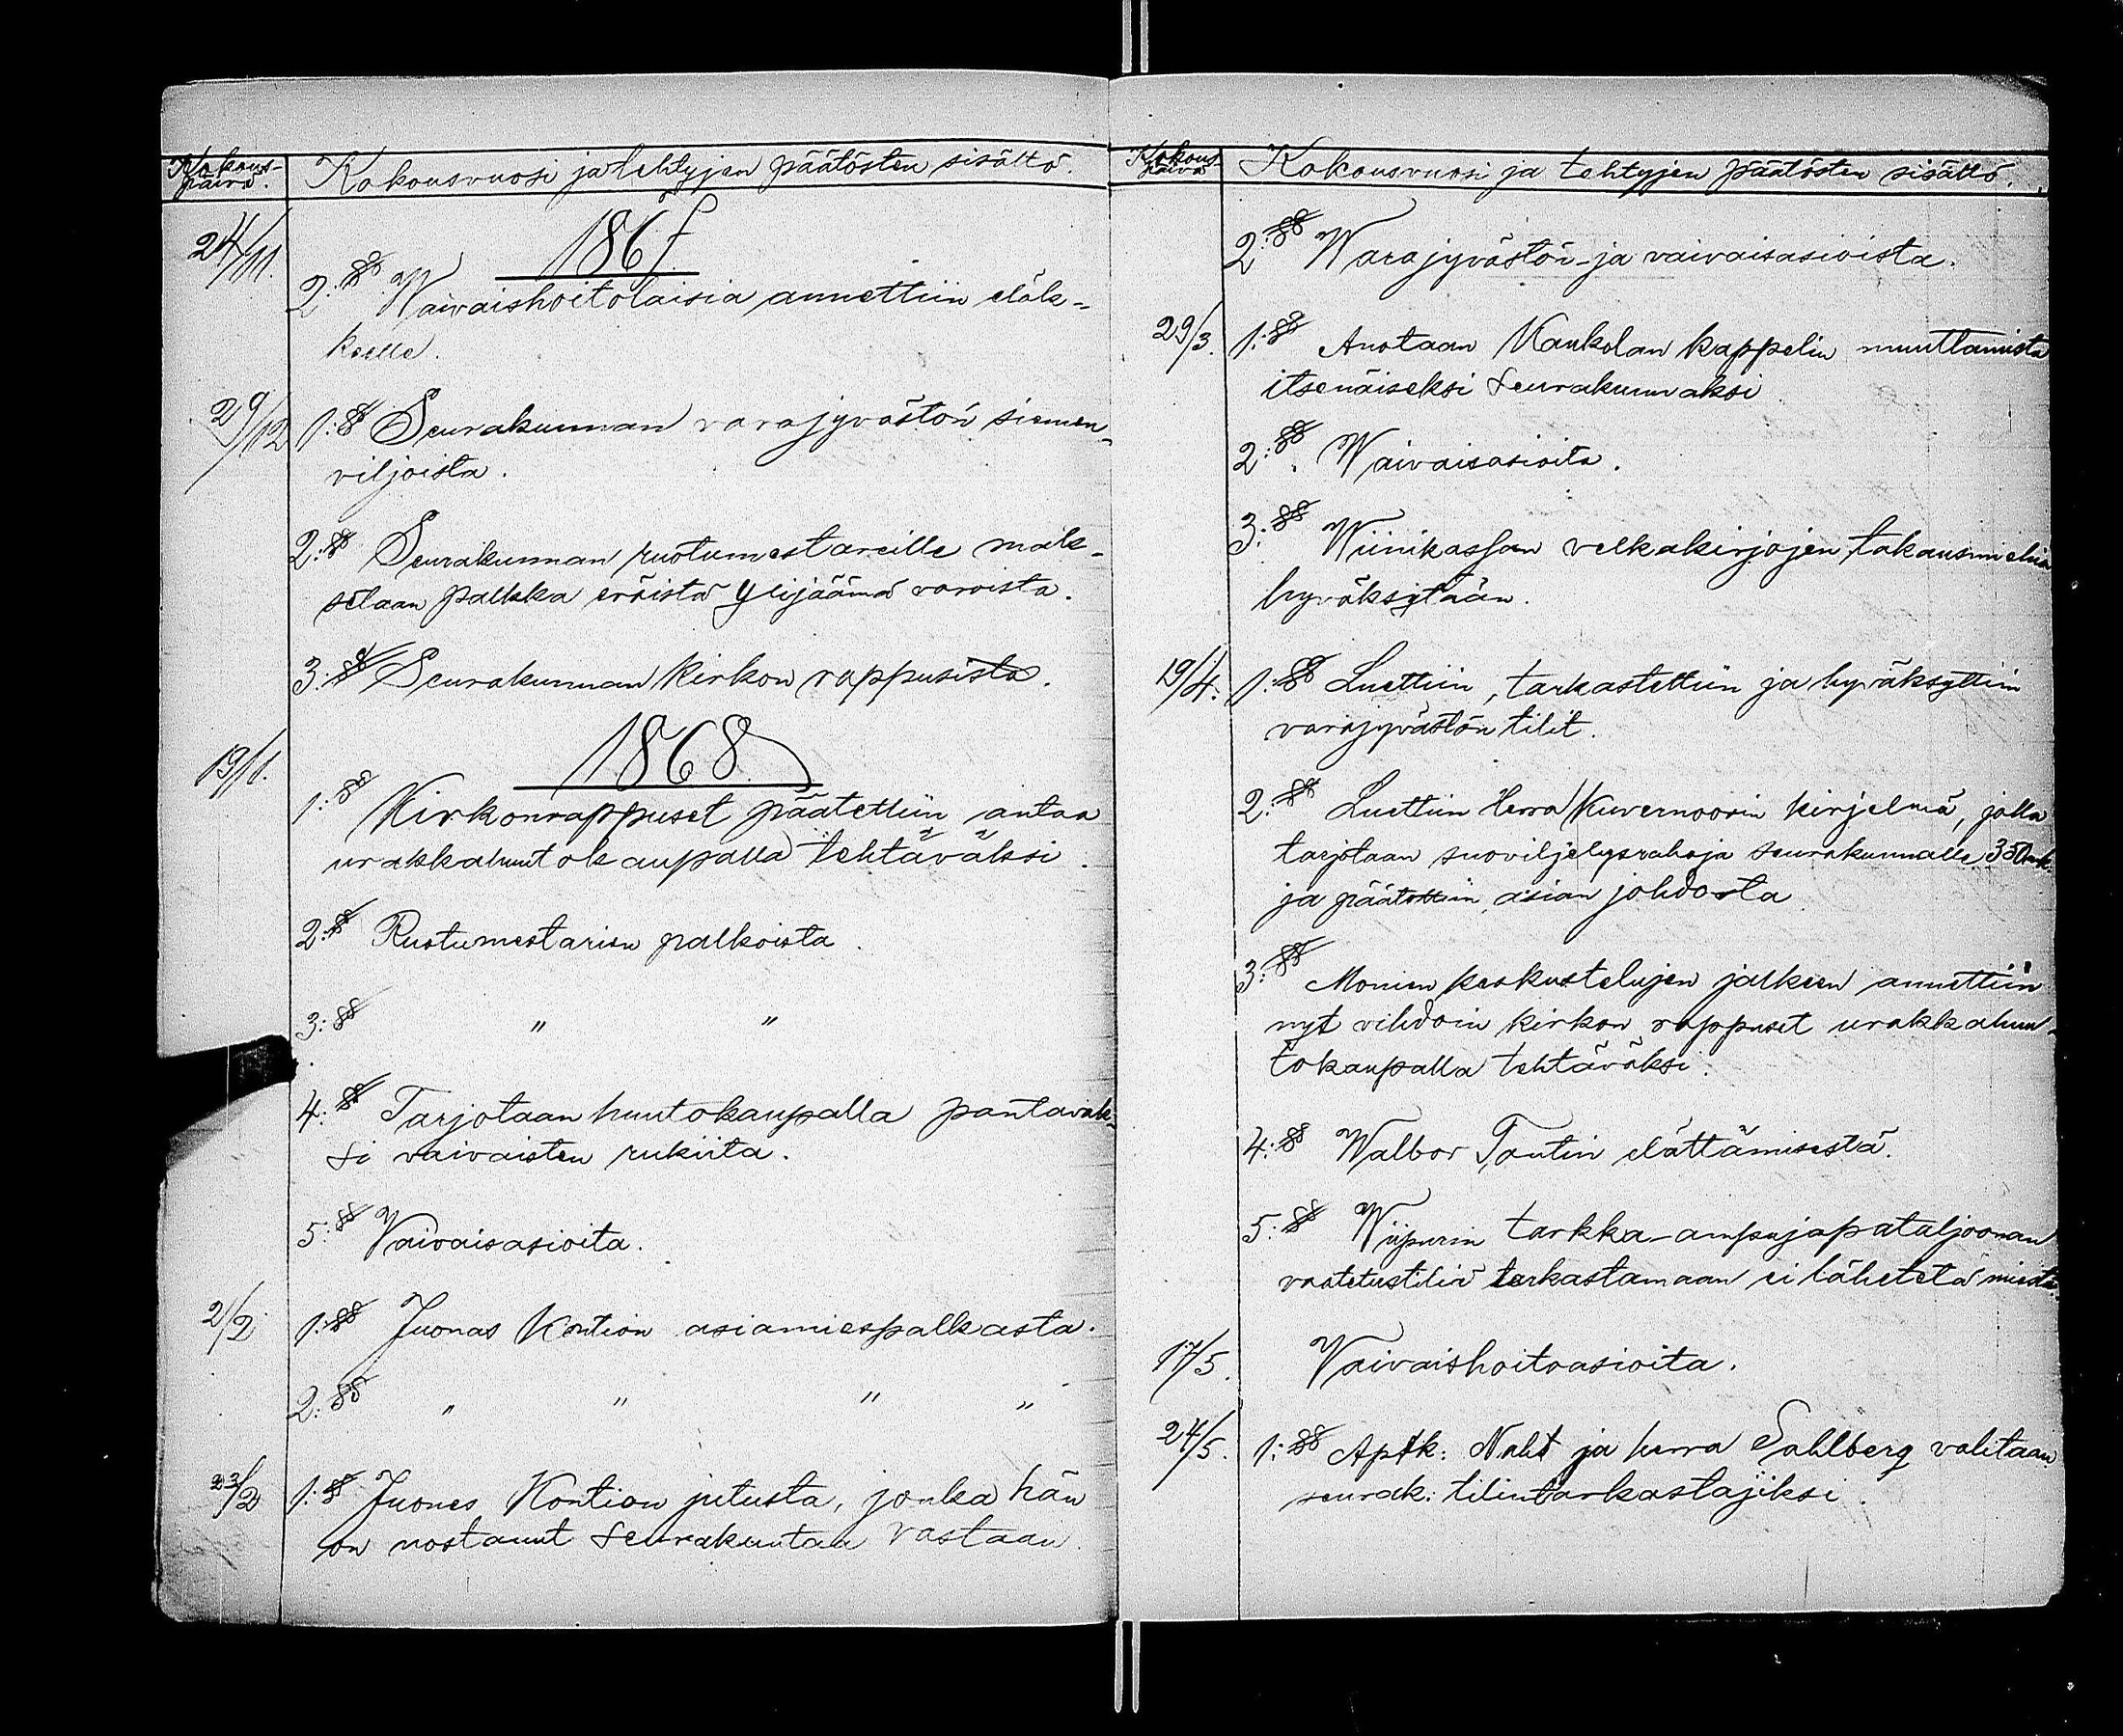 Kokous-
päivä.
Kokousvuosi ja tehtyjen päätösten sisältö.
1867
24/11.
2:§§ Waivaishoitolaisia annettiin eläk-
keelle.
29/12
1:§ Seurakunnan varajyvästön siemen-
viljoista.
2:§ Seurakunnan ruotumestareille mak-
setaan palkka eräistä ylijäämä varoista.
3:§ Seurakunnan kirkon rappusista.
1868
19/1.
1:§§ Kirkonrappuset päätettiin antaa
urakkahuutokaupalla tehtäväksi.
2:§ Ruotumestarien palkoista.
3:§§ " "
4:§§ Tarjotaan huutokaupalla pantavak-
si vaivaisten rukiita.
5:§§ Vaivaisasioita.
2/2
1:§§ Juonas Kontion asiamiespalkasta.
2:§§ " " " "
23/2
1:§ Juones Kontion jutusta, jonka hän
on nostanut seurakuntaa vastaan.
Kokous-
päivä
Kokousvuosi ja tehtyjen päätösten sisältö.
2:§§ Warajyvästön- ja vaivaisasioista.
29/3.
1:§§ Anotaan Kaukolan kappelin muuttamista
itsenäiseksi seurakunnaksi
2:§§. Waivaisasioita.
3:§§ Wiinikassan velkakirjojen takausmiehiä
hyväksytään.
19/4.
1:§§ Luettiin, tarkastettiin ja hyväksyttiin
varajyvästön tilit.
2:§§ Luettiin Herra Kuvernoorin kirjelmä, jolla
tarjotaan suoviljelysrahoja seurakunnalle 350mk.
ja päätettiin asian johdosta
3:§§ Monien keskustelujen jälkeen annettiin
nyt vihdoin kirkon rappuset urakkahuu-
tokaupalla tehtäväksi.
4:§§ Walbor Tontin elättämisestä.
5:§§ Wiipurin tarkka-ampujapataljoonan
vaatetustiliä tarkastamaan ei lähetetä miestä.
17/5.
Vaivaishoitoasioita.
24/5.
1:§§ Aptk: Naht ja herra Sahlberg valitaan
seurak: tilintarkastajiksi.